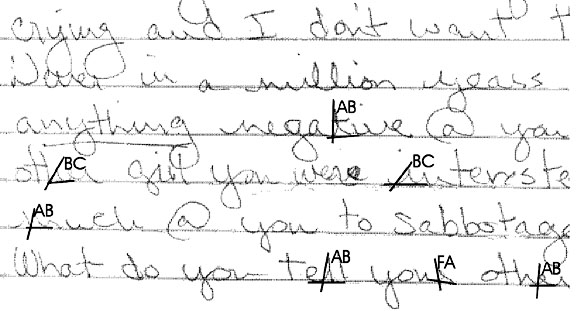 crying and I don't want t
Never in a million years
anything negative @ you
AB
other girl you were intereste
BC BC
much @ you to sabbotage
AB
What do you tell your other
AB FA AB